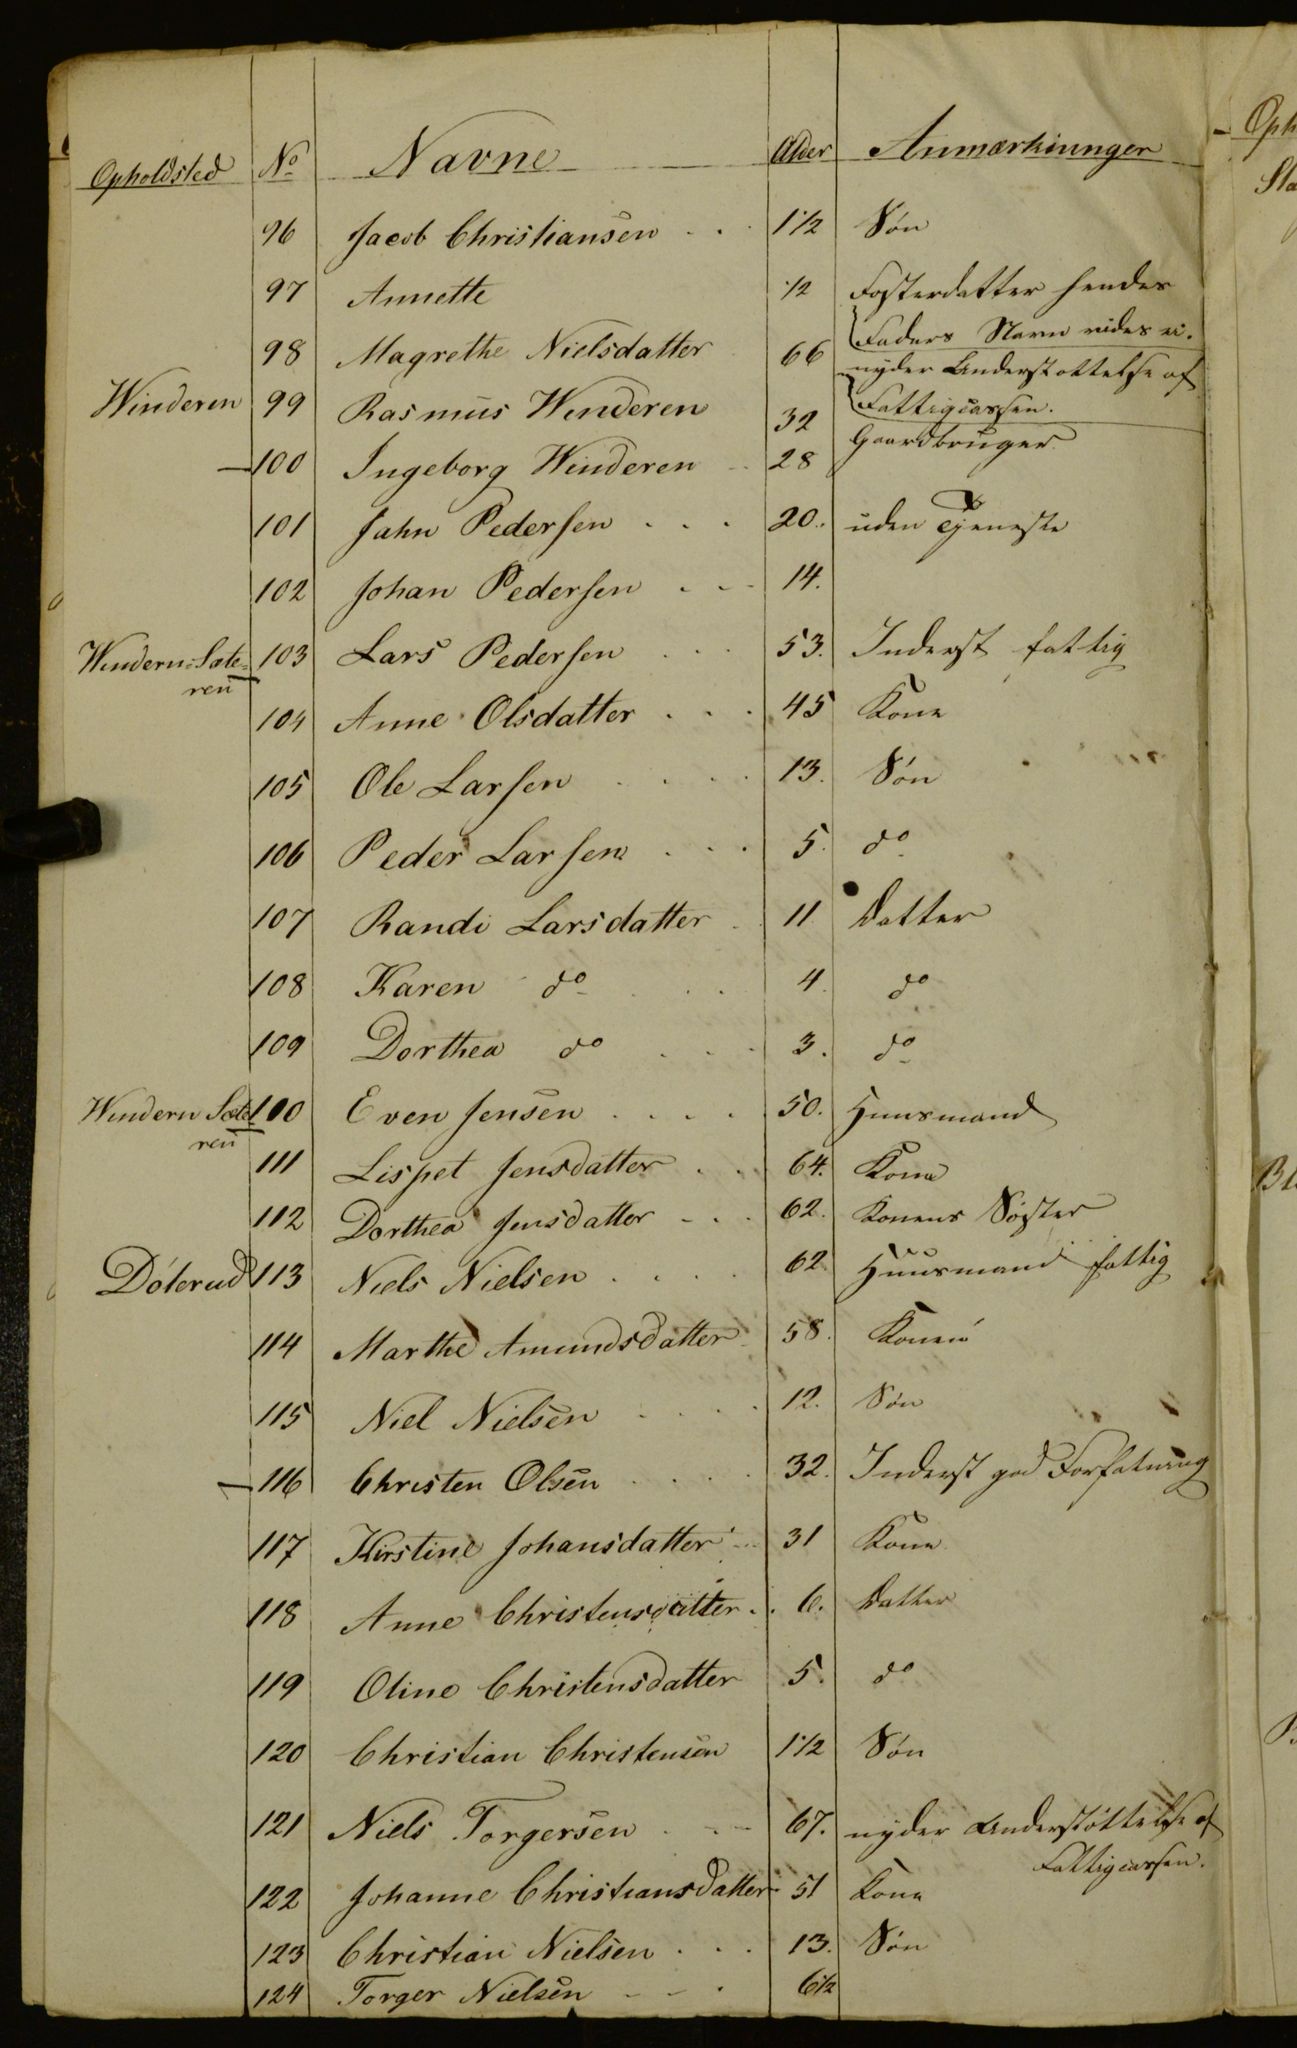 Opholdsted No Navne Alder Anmærkninger
96 Jacob Christiansen . . 1 1/2 Søn
97 Annette 1/2 Fosterdatter hendes
Faders Navn vides ei.
98 Magrethe Nielsdatter 66 nyder Understøttelse af
Fattigcassen.
Winderen 99 Rasmus Winderen 32 Gaardbruger
— 100 Ingeborg Winderen 28
101 Jahn Pedersen . . . 20. uden Tjeneste
102 Johan Pedersen . . . 14.
Windern-Sæte- 103 Lars Pedersen . . . 53. Inderst fattig
ren
104 Anne Olsdatter . . . 45 Kone
105 Ole Larsen . . . . 13. Søn
106 Peder Larsen . . . 5. do
107 Randi Larsdatter . 11 Datter
108 Karen do . . . 4. do
109 Dorthea do . . . 3. do
Windern Sæte- 100 Even Jensen . . . . 50. Huusmand
ren
111 Lispet Jensdatter . . . 64. Kone
112 Dorthea Jensdatter . . . 62. Konens Søster
Dóterud 113 Niels Nielsen . . . . 62. Huusmand fattig
114 Marthe Amundsdatter 58. Konen
115 Niel Nielsen . . . . 12. Søn
— 116 Christen Olsen . . . . 32. Inderst god Forfatning
117 Kirstine Johansdatter 31 Kone
118 Anne Christensdatter . . 6. Datter
119 Oline Christensdatter 5. do
120 Christian Christensen 1 1/2 Søn
121 Niels Torgersen . . . 67. nyder Understøttelse af
Fattigcassen.
122 Johanne Christiansdatter 51 Kone
123 Christian Nielsen . . . 13. Søn
124 Torger Nielsen . . . 6 1/2
Oph
Sta